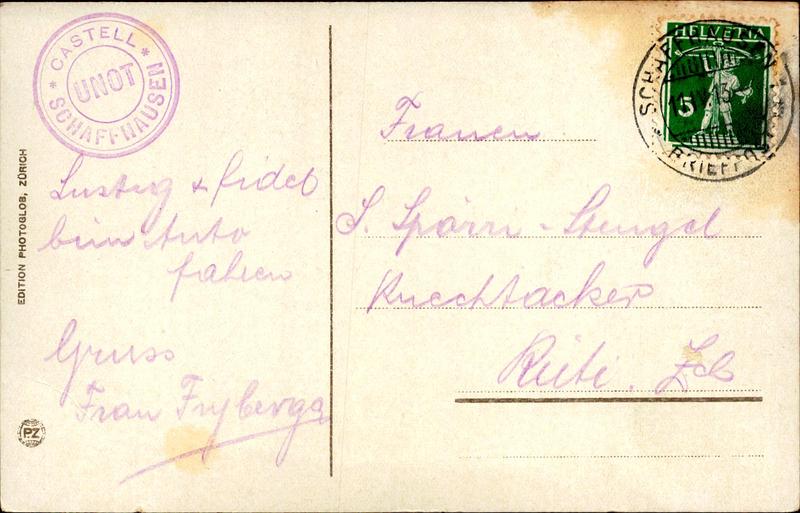 CASTELL
UNOT
SCHAFFHAUSEN
HELVETIA
5
SCHAFFHAUSEN
BRIEFPOST
EDITION PHOTOGLOB, ZÜRICH
PZ
Lustig & fidel
beim Auto
fahren
Gruss
Frau Fryberg
Frauen
S. Spörri-Stengel
Knechtacker
Rüti. Zch